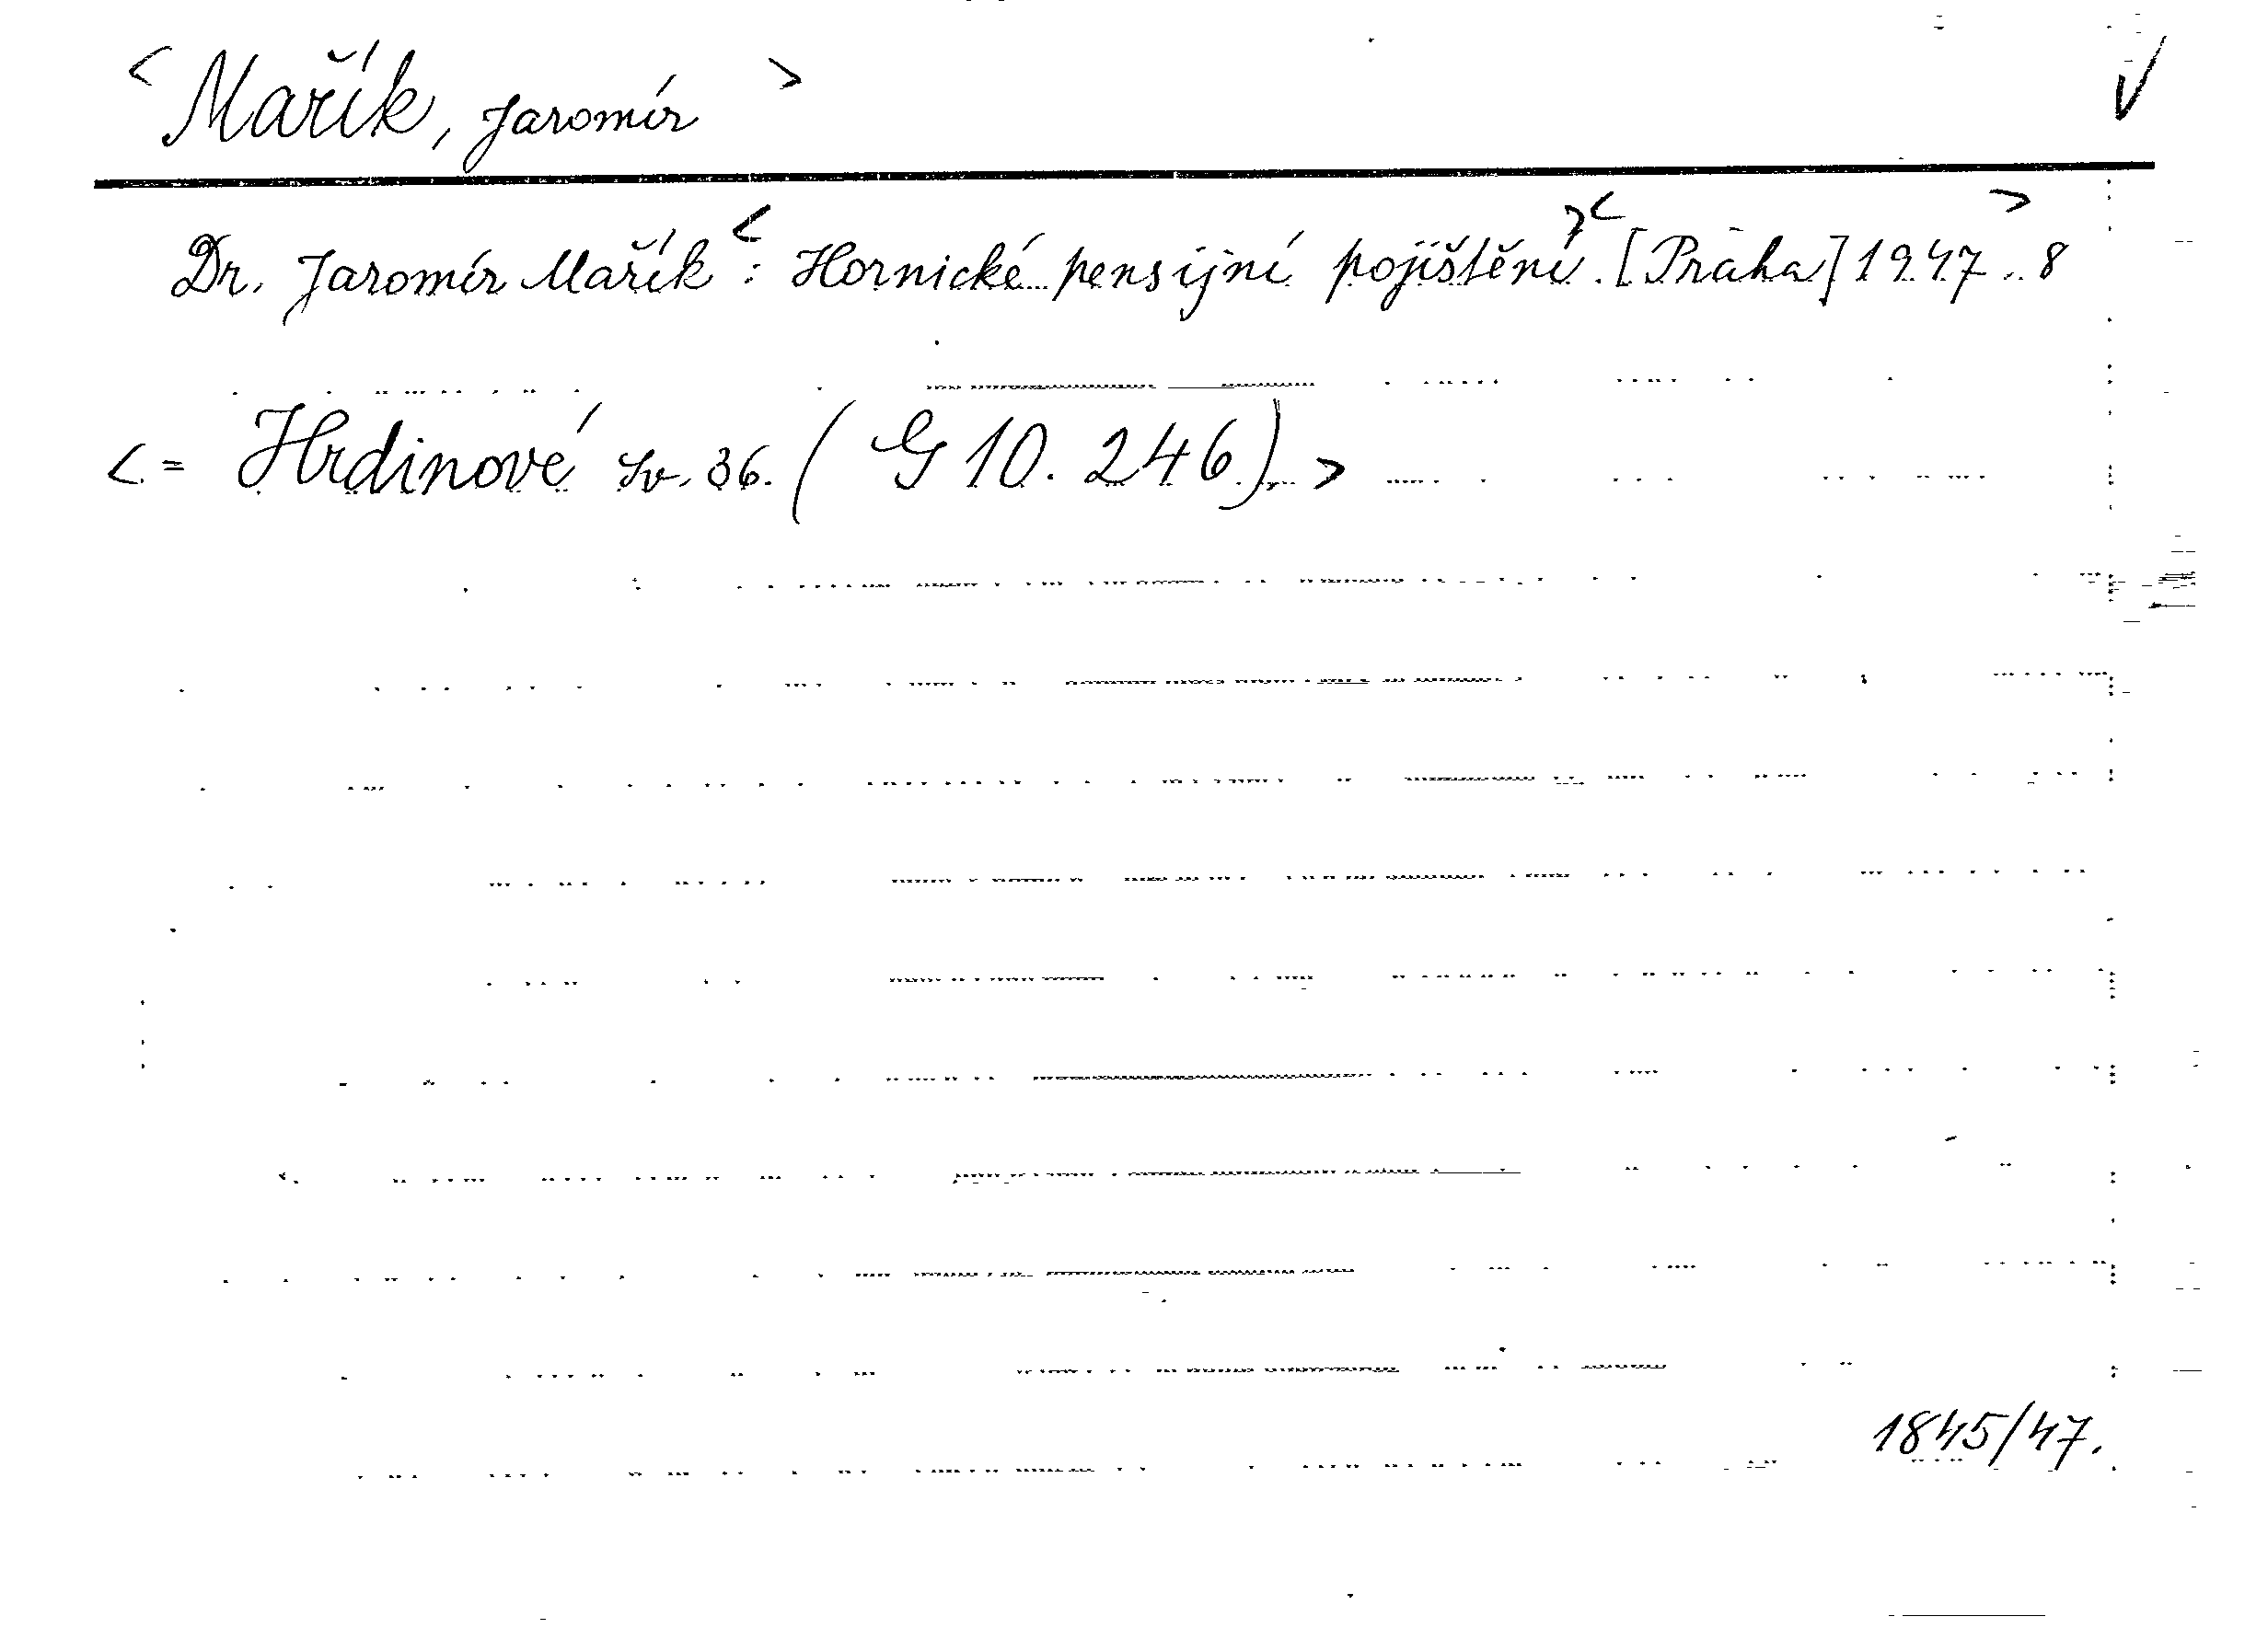 < Mařík, Jaromír > √
Dr. Jaromír Mařík <: Hornické pensijní pojištění >. < [Praha] 1947 > . 8
< = Hrdinové sv. 36. ( G 10.246) >
1845/47.